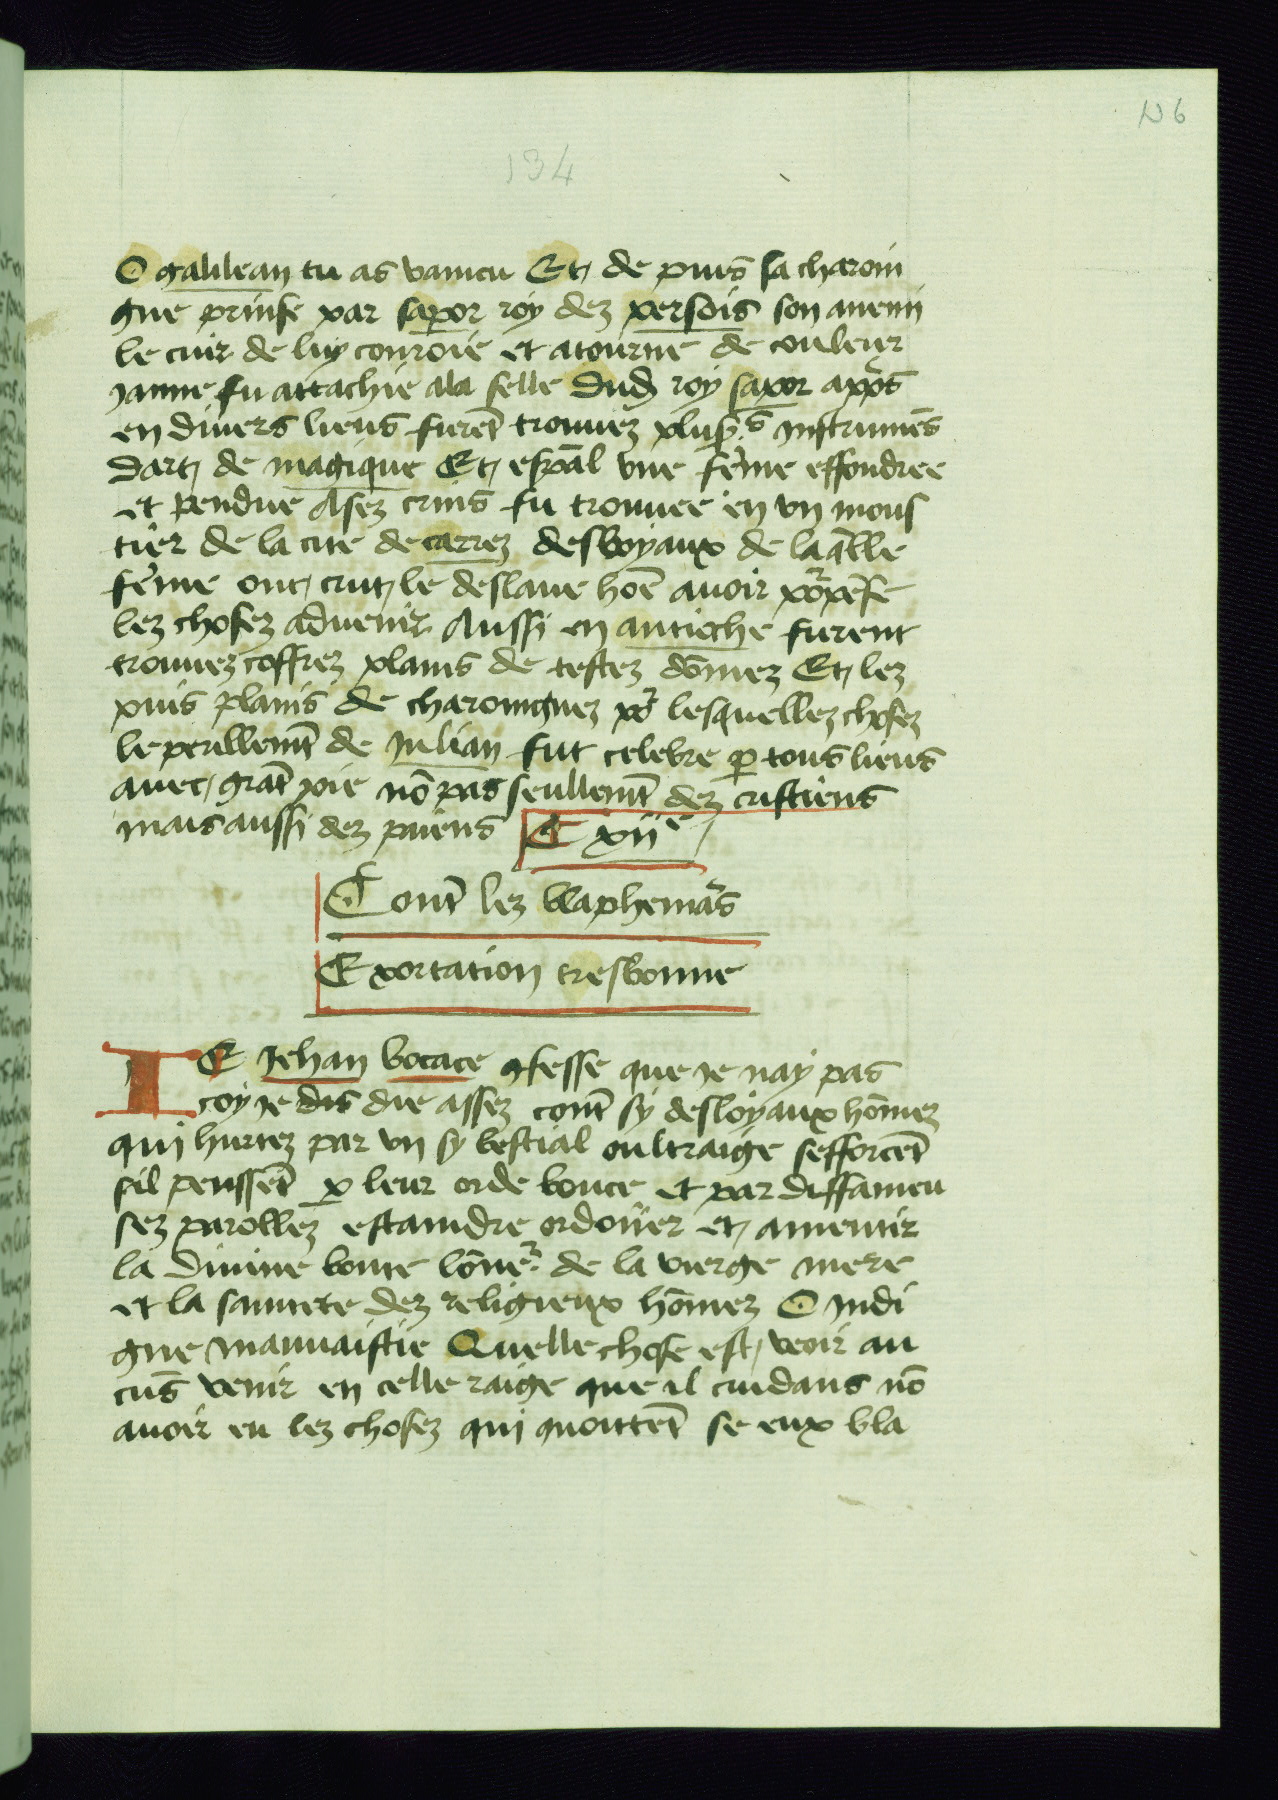 N6
134
O galilean tu as vaincu Et de puis sa charoin
gne prinse par sapor roy dez persois son anemi
le cuir de luy conroie et atourne de couleur
jaune fu attachie ala selle Dud roy sapor appr̃s
en divers lieus furẽt trouvez plusr̃s instrumẽs
Dart de magique Et esp̃al vne fẽme effondree
et pendue Asez crins fu trouvee en vn mous
tier de la cite de carrez desboyaux de laq̃lle
fẽme ont crut le deslave hoẽ avoir
lez chosez advenir Aussi en antioche furent
trouvez coffrez plains de testez dõmez Et lez
puis plains de charoingnez por lesquellez chosez
le perillemt̃ de Julian fut celebre p̱ tous lieus
avec grãt pie nõ pas seullemt̃ dez cristiens
mais aussi dez paiens C xiiᵉ
Cont̃ lez blaphemãs
Exortation tresbonne
IE Jehan bocace ꝯfesse que je nay pas
coy je dis die assez cont̃ sy desloyaux hõmez
qui hurtez par vn sy bestial oultraige sefforcẽt
sil peussẽt p̱ leur orde bouce et par diffameu
sez parollez estaindre ordoũer et amentir
la divine bonte lõneʳ de la vierge mere
et la saintete dez religieux hõmez O indi
gne mauvaistie Quelle chose est veoir au
cũs venir en celle raige que il cuidans nõ
avoir eu lez chosez qui se eux bla